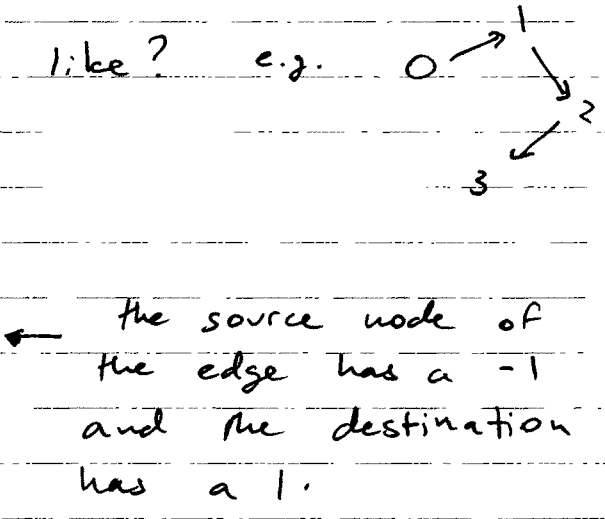 like? e.g. 0 → 1
2
3
← the source node of
the edge has a -1
and the destination
has a 1.